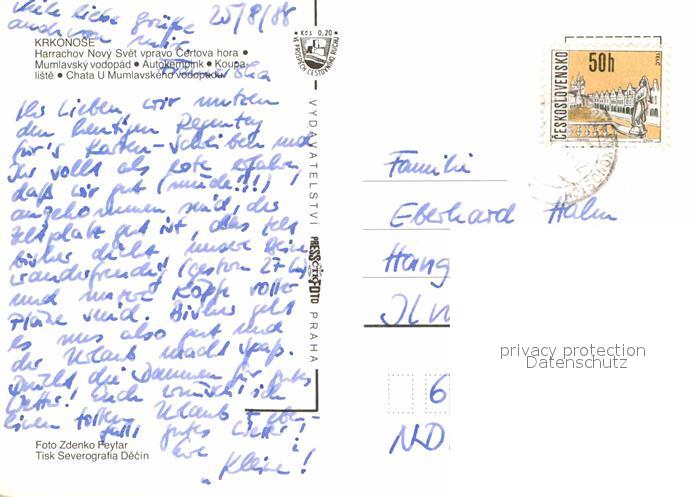 Viele liebe Grüße 25/8/88
auch von
KRKONOŠE
Harrachov Nový Svět vpravo Čertova hora •
Mumlavský vodopád • Autokempink • Koupa-
liště • Chata U Mumlavského vodopádu
Kčs 0,20
VE PROSPĚCH CESTOVNÍHO RUCHU
Ihr Lieben, wir nutzen
den heutigen Regentag
für's Karten-Schreiben und
Ihr sollt als erste erfahren,
daß wir gut (müde!!!)
angekommen sind, der
Zeltplatz gut ist, das Zelt
bisher dicht, unsere Beine
wanderfreudig (gestern 27 km)
und unsere Köpfe voller
Pläne sind. Bisher geht
es uns also gut und
der Urlaub macht Spaß.
Drückt die Daumen für gutes
Wetter! Euch wünsch' ich
einen tollen Urlaub + eben-
falls gutes Wetter!
Eure
"Kleine!
Foto Zdenko Feyfar
Tisk Severografia Děčín
VYDAVATELSTVÍ PRESSFOTO PRAHA
ČESKOSLOVENSKO
50h
TELČ
Familie
Eberhard Hahn
Hang
Ilm
6
DD
privacy protection
Datenschutz